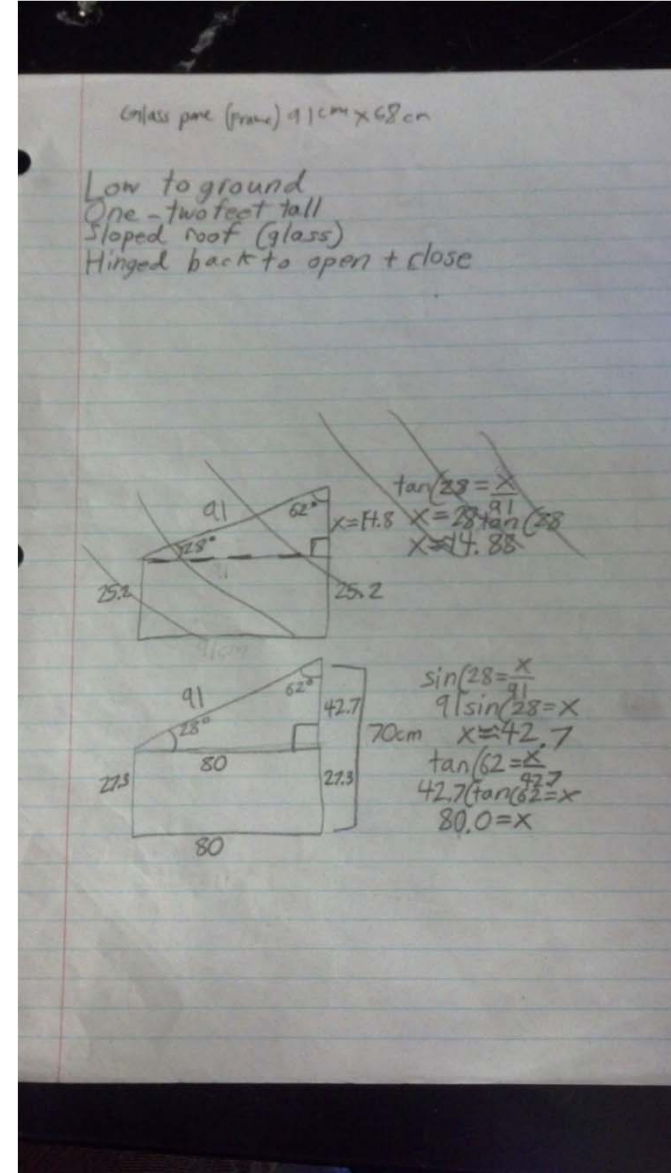 Glass pane (Frame) 91cm x 68cm
Low to ground
One - two feet tall
Sloped roof (glass)
Hinged back to open + close
91
62°
28°
x=14.8
25.2
25.2
91cm
tan(28 = x/91
x = 28tan(28
x≈14.88
91
62°
28°
42.7
80
70cm
27.3
27.3
80
sin(28 = x/91
91sin(28 = x
x≈42.7
tan(62 = x/42.7
42.7(tan(62 = x
80.0 = x